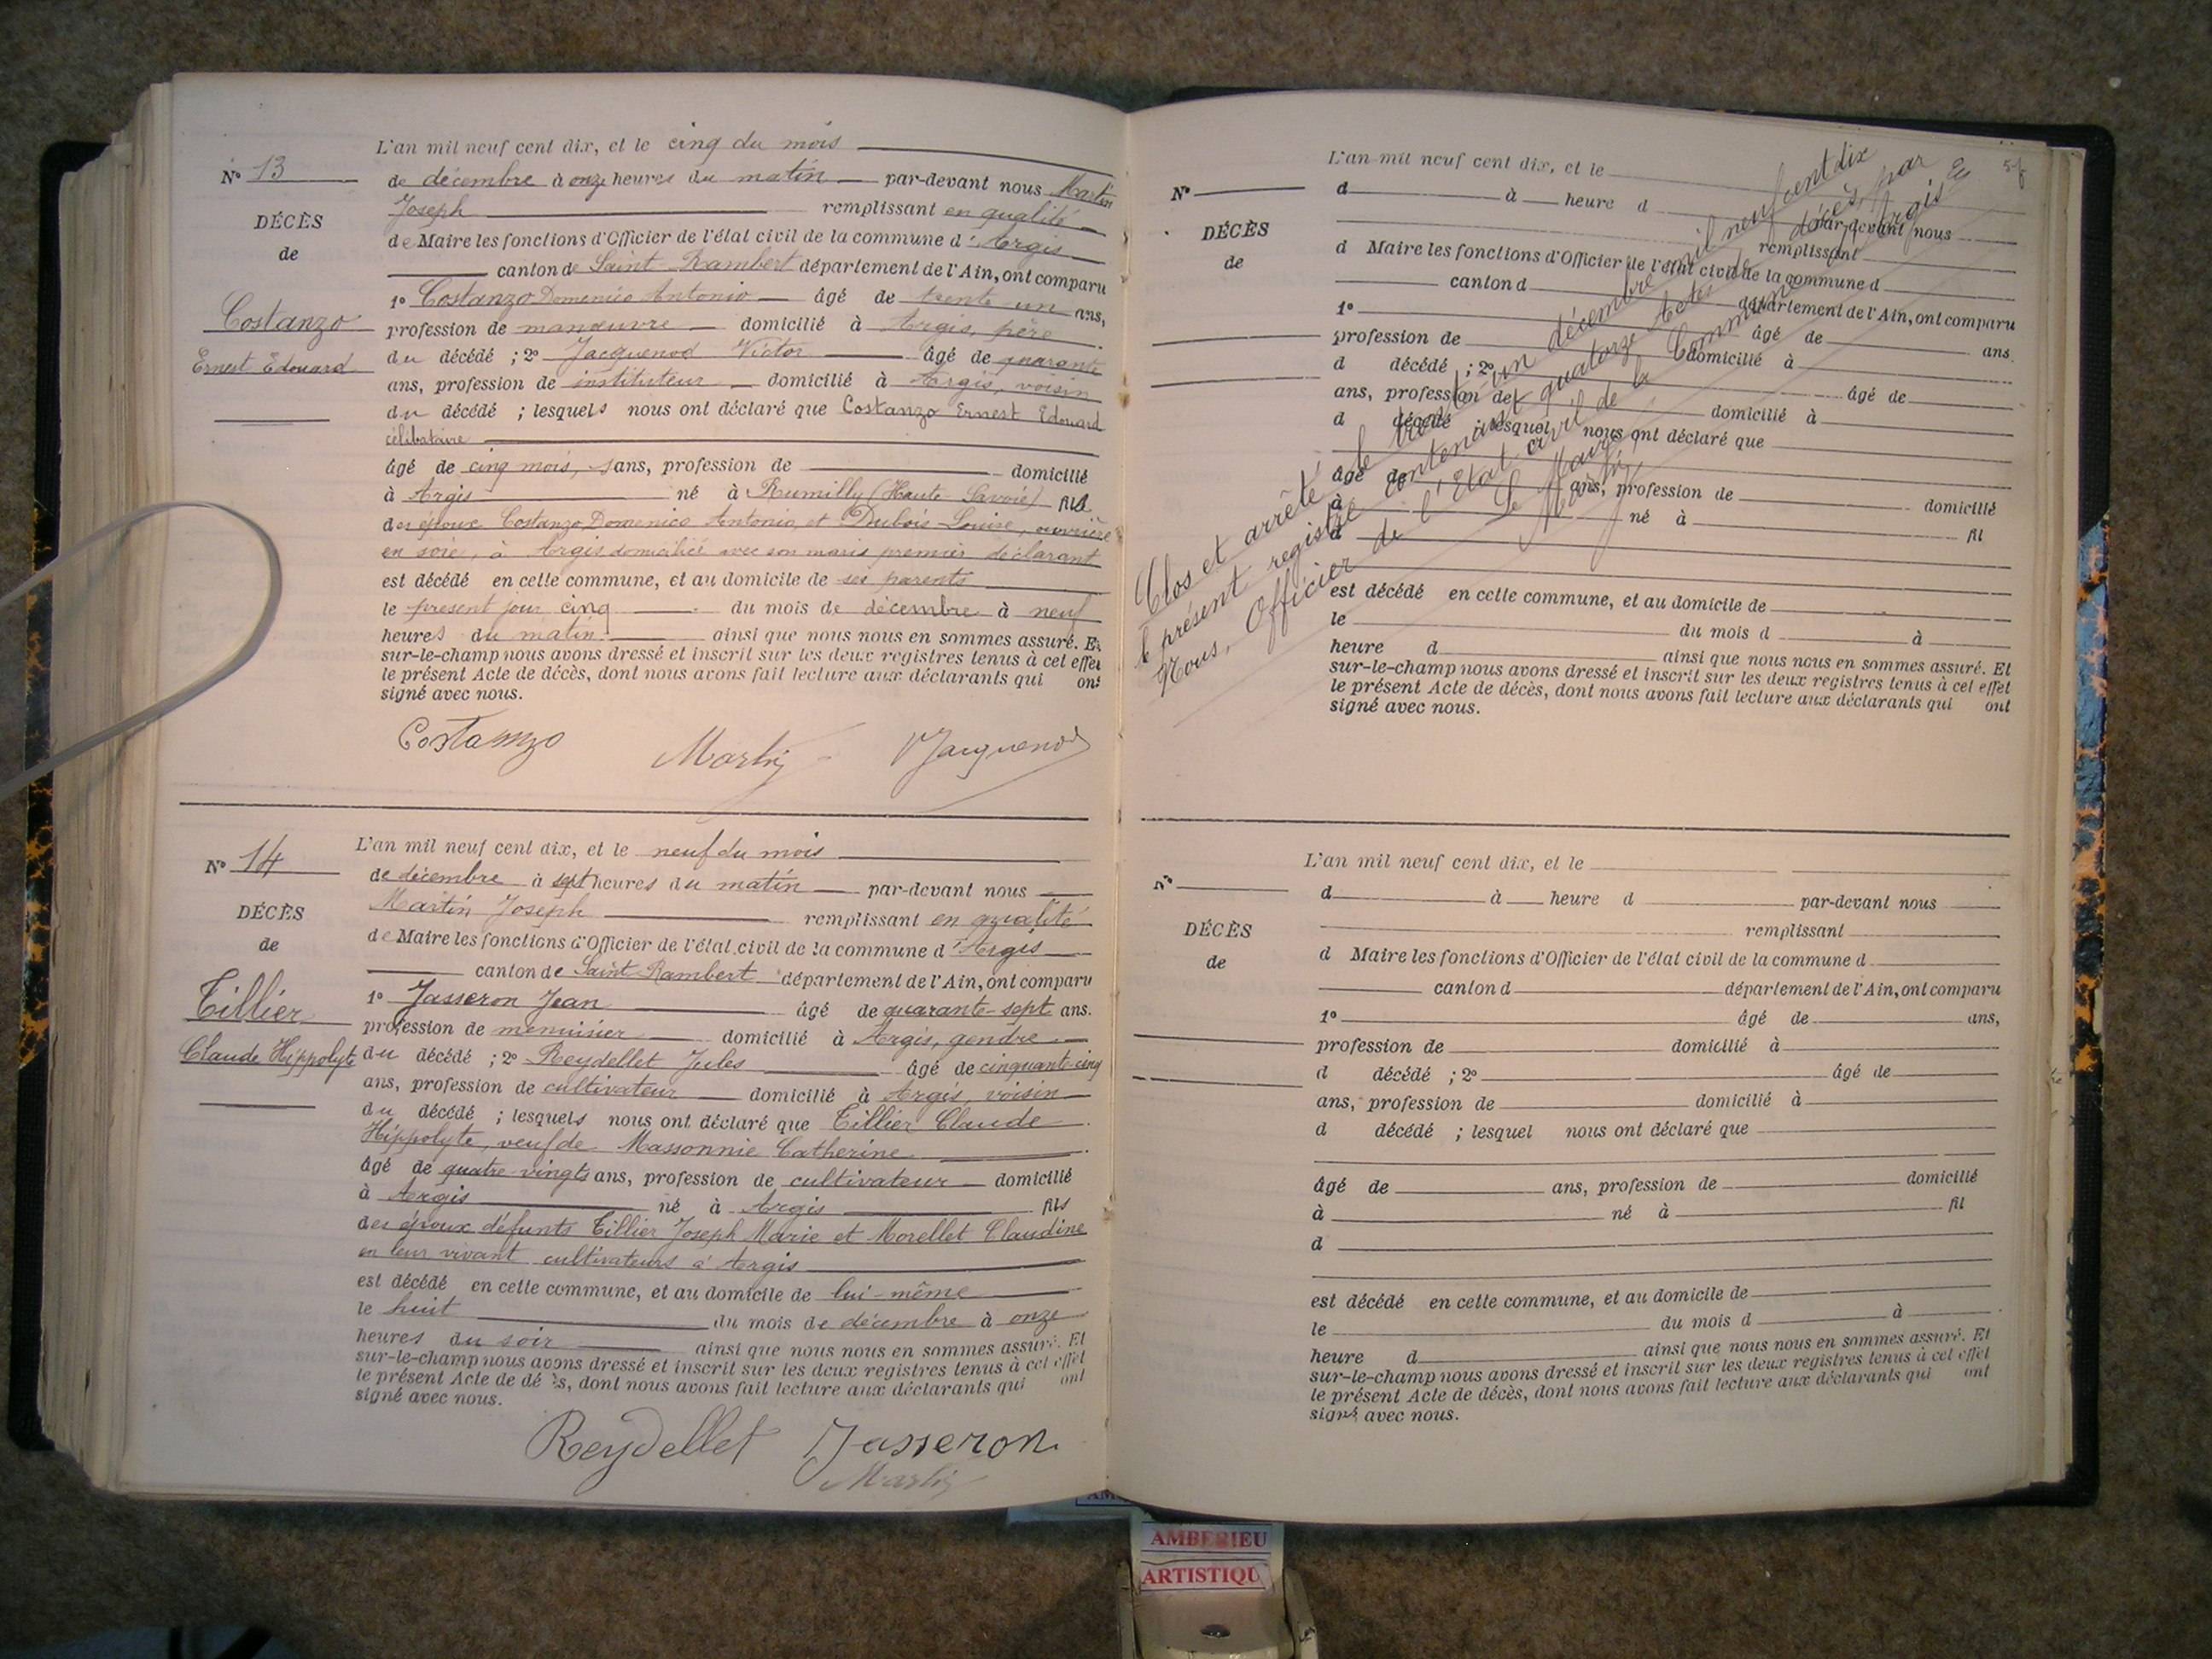 L'an mil neuf cent dix, et le cinq du mois
N° 13
de décembre à onze heures du matin par-devant nous Martin
Joseph remplissant en qualité
DÉCÈS
de Maire les fonctions d'Officier de l'état civil de la commune d'Argis
de
canton de Saint Rambert département de l'Ain, ont comparu
1° Costanzo Domenico Antonio âgé de trente un ans,
Costanzo
profession de manœuvre domicilié à Argis, père
Ernest Edouard
du décédé ; 2° Jacquenod Victor âgé de quarante
ans, profession de instituteur domicilié à Argis, voisin
du décédé ; lesquels nous ont déclaré que Costanzo Ernest Edouard
célibataire
âgé de cinq mois, sans, profession de domicilié
à Argis né à Rumilly (Haute-Savoie) fils
des époux Costanzo Domenico Antonio et Dubois Louise, ouvrière
en soie, à Argis domiciliée avec son maris premier déclarant
est décédé en cette commune, et au domicile de ses parents
le présent jour cinq du mois de décembre à neuf
heures du matin ainsi que nous nous en sommes assuré. Et
sur-le-champ nous avons dressé et inscrit sur les deux registres tenus à cet effet
le présent Acte de décès, dont nous avons fait lecture aux déclarants qui ont
signé avec nous.
Costanzo Martin VJacquenod
L'an mil neuf cent dix, et le neuf du mois
N° 14
de décembre à sept heures du matin par-devant nous
Martin Joseph remplissant en qualité
DÉCÈS
de Maire les fonctions d'Officier de l'état civil de la commune d'Argis
de
canton de Saint Rambert département de l'Ain, ont comparu
1° Jasseron Jean âgé de quarante-sept ans.
Tillier
profession de menuisier domicilié à Argis, gendre
Claude Hippolyte
du décédé ; 2° Reydellet Jules âgé de cinquante-cinq
ans, profession de cultivateur domicilié à Argis, voisin
du décédé ; lesquels nous ont déclaré que Tillier Claude
Hippolyte, veuf de Massonnie Catherine
âgé de quatre vingts ans, profession de cultivateur domicilié
à Argis né à Argis fils
des époux défunts Tillier Joseph Marie et Morellet Claudine
en leur vivant cultivateurs à Argis
est décédé en cette commune, et au domicile de lui-même
le huit du mois de décembre à onze
heures du soir ainsi que nous nous en sommes assuré. Et
sur-le-champ nous avons dressé et inscrit sur les deux registres tenus à cet effet
le présent Acte de décès, dont nous avons fait lecture aux déclarants qui ont
signé avec nous.
Reydellet Jasseron
Martin
L'an mil neuf cent dix, et le
N°
d à heure d
par-devant nous
DÉCÈS
remplissant
de
d Maire les fonctions d'Officier de l'état civil de la commune d
canton d département de l'Ain, ont comparu
1° âgé de ans.
profession de domicilié à
d décédé ; 2° âgé de
ans, profession de domicilié à
d décédé ; lesquel nous ont déclaré que
âgé de ans, profession de domicilié
à né à fil
d
est décédé en cette commune, et au domicile de
le du mois d à
heure d ainsi que nous nous en sommes assuré. Et
sur-le-champ nous avons dressé et inscrit sur les deux registres tenus à cet effet
le présent Acte de décès, dont nous avons fait lecture aux déclarants qui ont
signé avec nous.
Clos et arrêté le trente un décembre mil neuf cent dix
le présent registre contenant quatorze Actes de décès par
Nous, Officier de l'Etat civil de la Commune d'Argis
Le Maire,
Martin
L'an mil neuf cent dix, et le
N°
d à heure d par-devant nous
remplissant
DÉCÈS
de
d Maire les fonctions d'Officier de l'état civil de la commune d
canton d département de l'Ain, ont comparu
1° âgé de ans,
profession de domicilié à
d décédé ; 2° âgé de
ans, profession de domicilié à
d décédé ; lesquel nous ont déclaré que
âgé de ans, profession de domicilié
à né à fil
d
est décédé en cette commune, et au domicile de
le du mois d à
heure d ainsi que nous nous en sommes assuré. Et
sur-le-champ nous avons dressé et inscrit sur les deux registres tenus à cet effet
le présent Acte de décès, dont nous avons fait lecture aux déclarants qui ont
signé avec nous.
AMBERIEU
ARTISTIQU